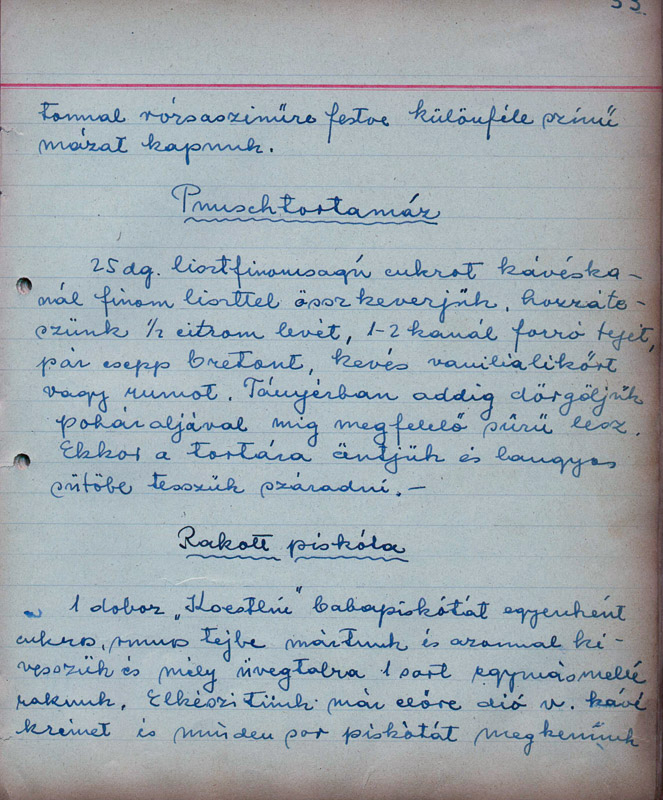 33.
tonnal rózsaszinűre festve különféle színű
mázat kapunk.
Punschtortamáz
25 dg. lisztfinomságú cukrot kávéska-
nál finom liszttel összkeverjük, hozzáte-
szünk 1/2 citrom levét, 1-2 kanál forró tejet,
pár csepp bretont, kevés vanilialikőrt
vagy rumot. Tányérban addig dörgöljük
pohár aljával mig megfelelő sűrű lesz.
Ekkor a tortára öntjük és langyos
sütőbe tesszük száradni. -
Rakott piskóta
1 doboz "Koestlin" babapiskótát egyenként
cukros, rumos tejbe mártunk és azonnal ki-
vesszük és mély üvegtalra 1 sort egymásmellé
rakunk. Elkészitünk már előre dió v. kávé
krémet és minden sor piskótát megkenünk